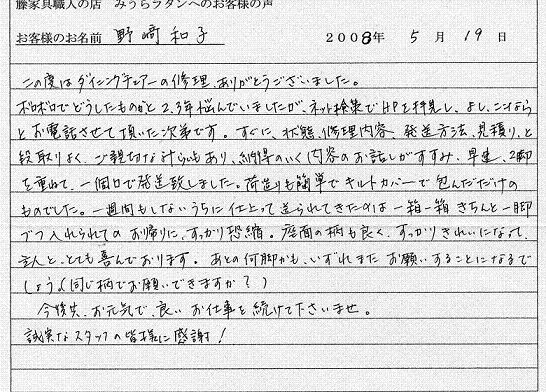 藤家具職人の店 みうらラタンへのお客様の声
お客様のお名前 野﨑和子 2008年 5月 19日
この度はダイニングチェアーの修理、ありがとうございました。
ボロボロでどうしたものかと2,3年悩んでいましたが、ネット検索でHPを拝見し、よし、これなら
とお電話させて頂いた次第です。すぐに、状態、修理内容、発送方法、見積り、と
段取りよく、ご親切な
もあり、納得のいく内容のお話しがすすみ、早速、2脚
を重ねて、一個口で発送致しました。荷造りも簡単でキルトカバーで包んだだけの
ものでした。一週間もしないうちに仕上って送られてきたのは一箱一箱きちんと一脚
づつ入れられてのお帰りに、すっかり恐縮。座面の柄も良く、すっかりきれいになって、
主人と、とても喜んでおります。あとの何脚かも、いずれまたお願いすることになるで
しょう(同じ柄でお願いできますか？)
今後共、お元気で、良いお仕事を続けて下さいませ。
誠実なスタッフの皆様に感謝！